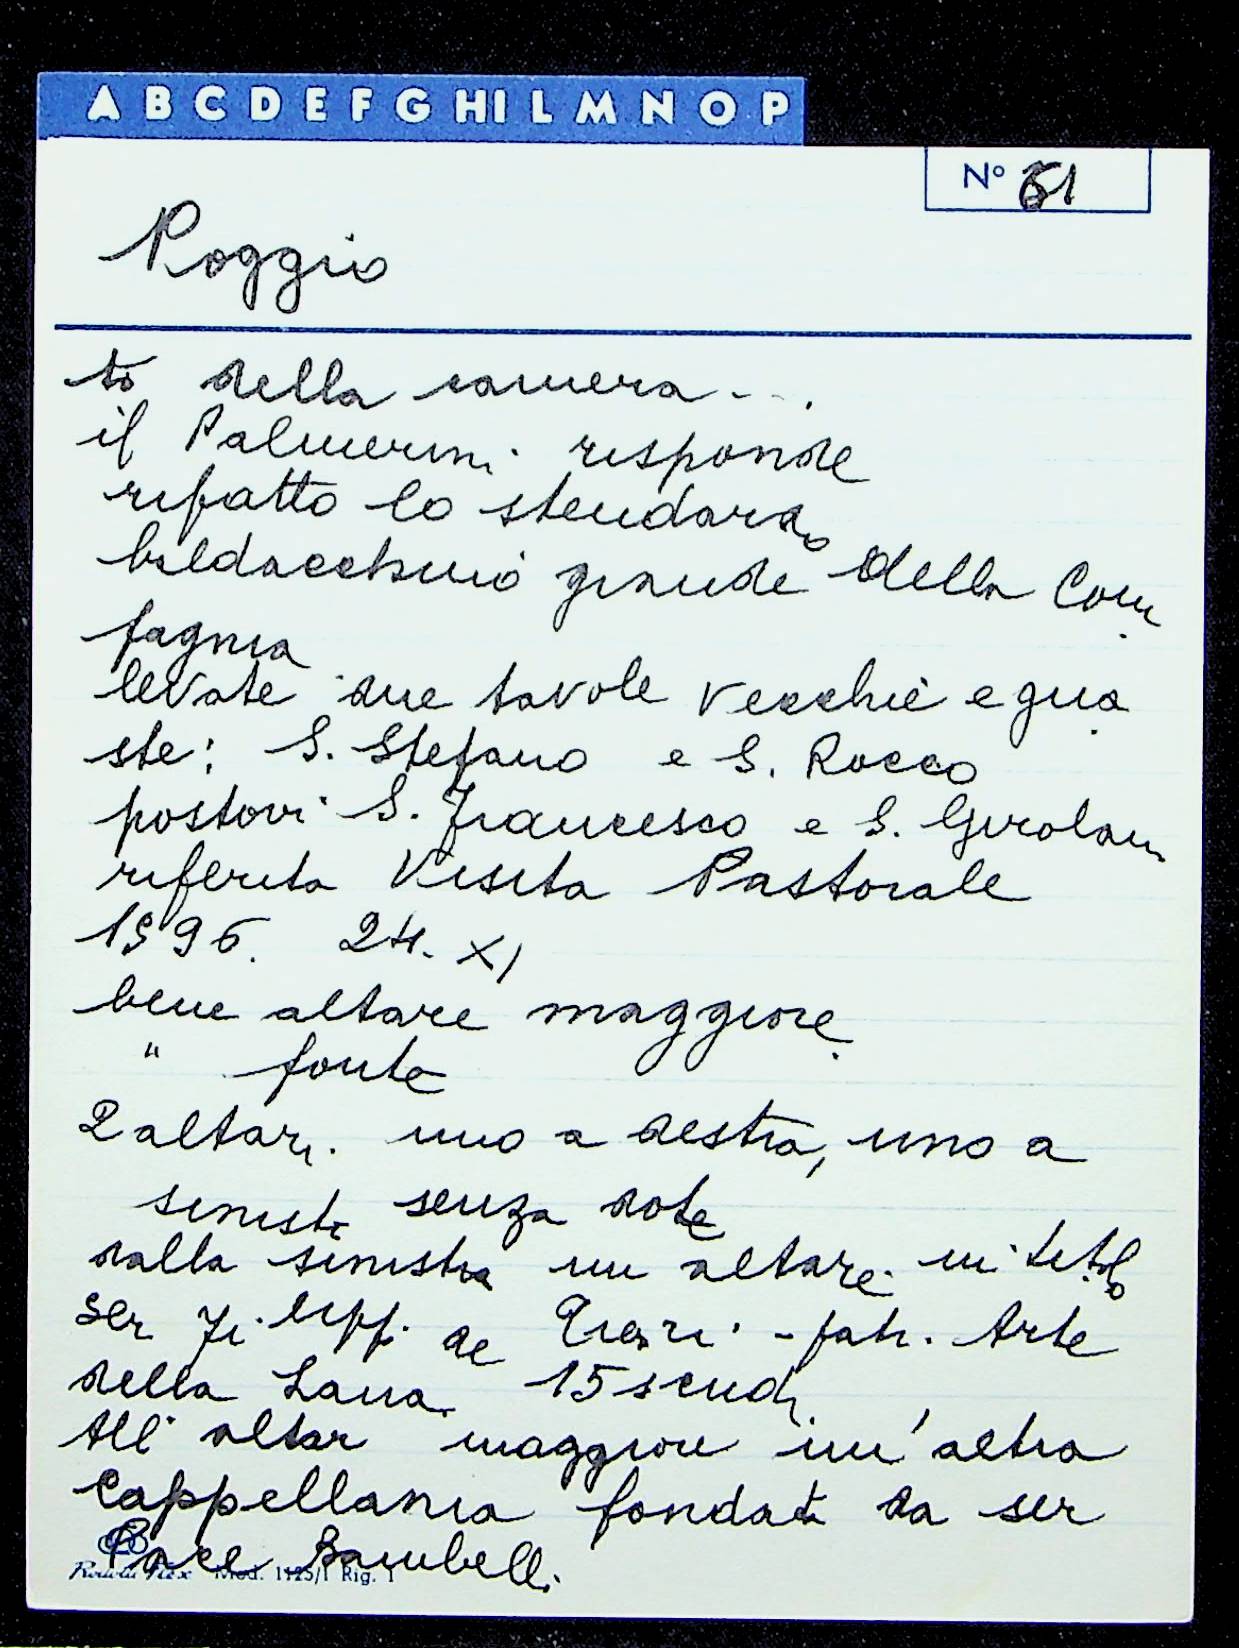 A B C D E F G H I L M N O P
N° 61
Poggio
to della camera ...
il Palmerini risponde
rifatto lo stendardo
baldacchino grande della Com
pagnia
levate due tavole vecchie e gua
ste: S. Stefano e S. Rocco
postovi S. Francesco e S. Girolam
riferita Visita Pastorale
1596. 24. XI
bene altare maggiore
" fonte
2 altari uno a destra, uno a
sinistr senza dote
dalla sinistra un altare in titolo
ser de - patr. Arte
della Lana 15 scudi
All' altar maggiore un'altra
Cappellania fondata da ser
Pace Bambelli
Mod. 1125/1 Rig. 1